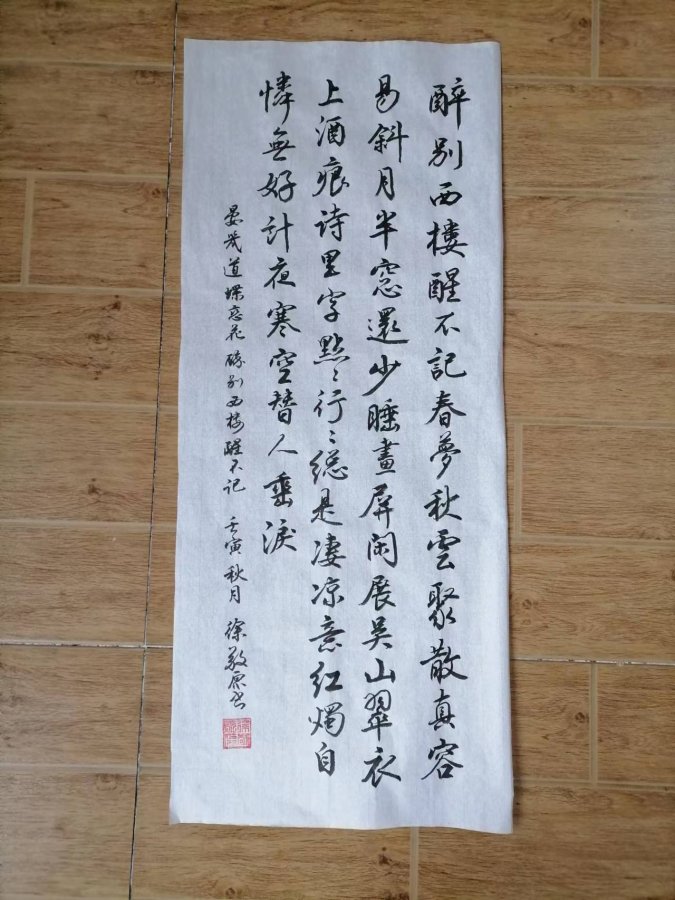 醉别西楼醒不記春夢秋雲聚散真容
易斜月半窓還少睡畫屏闲展吴山翠衣
上酒痕诗里字點〻行〻総是凄凉意红烛自
憐無好计夜寒空替人垂淚
晏幾道蝶恋花醉别西楼醒不记 壬寅秋月 徐敬原书